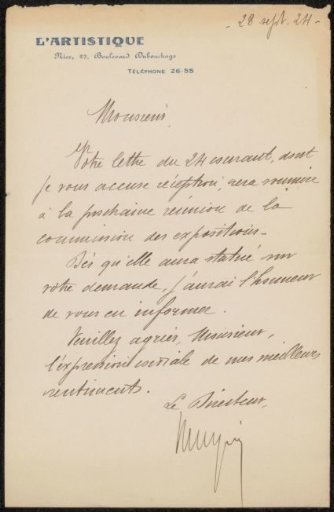 28 sept. 24-
L'ARTISTIQUE
Nice, 27, Boulevard Dubouchage
TÉLÉPHONE 26-55
Monsieur,
Votre lettre du 24 courant, dont
je vous accuse réception, sera soumise
à la prochaine réunion de la
commission des expositions.
Dès qu'elle aura statué sur
votre demande, j'aurai l'honneur
de vous en informer.
Veuillez agréer, Monsieur,
l'expression cordiale de mes meilleurs
sentiments.
Le Directeur,